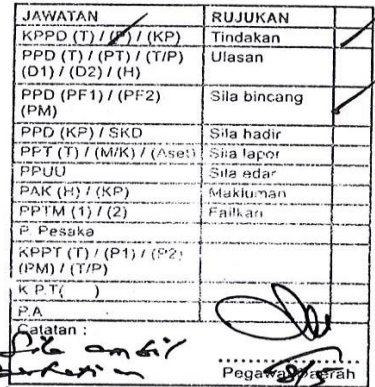 JAWATAN RUJUKAN
KPPD (T) / (P) / (KP) Tindakan
PPD (T) / (PT) / (T/P) Ulasan
(D1) / (D2) / (H)
PPD (PF1) / (PF2) Sila bincang
(PM)
PPD (KP) / SKD Sila hadir
PPT (T) / (M/K) / (Aset) Sila lapor
PPUU Sila edar
PAK (H) / (KP) Makluman
PPTM (1) / (2) Failkan
P. Pesaka
KPPT (T) / (P1) / (P2)
(PM) / (T/P)
K.P.T( )
P.A
Catatan :
Sila ambil
perhatian Pegawai Daerah